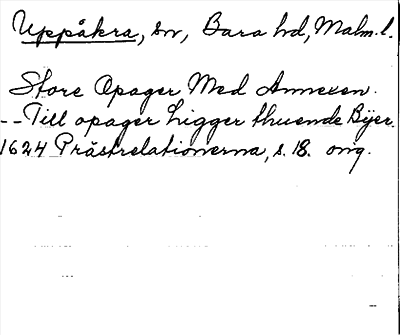 Uppåkra, sn, Bara hd, Malm. l.
Store Opager Med Annexen.
-- Till opager Ligger thuende Byer.
1624 Prästrelationerna, s. 18. orig.